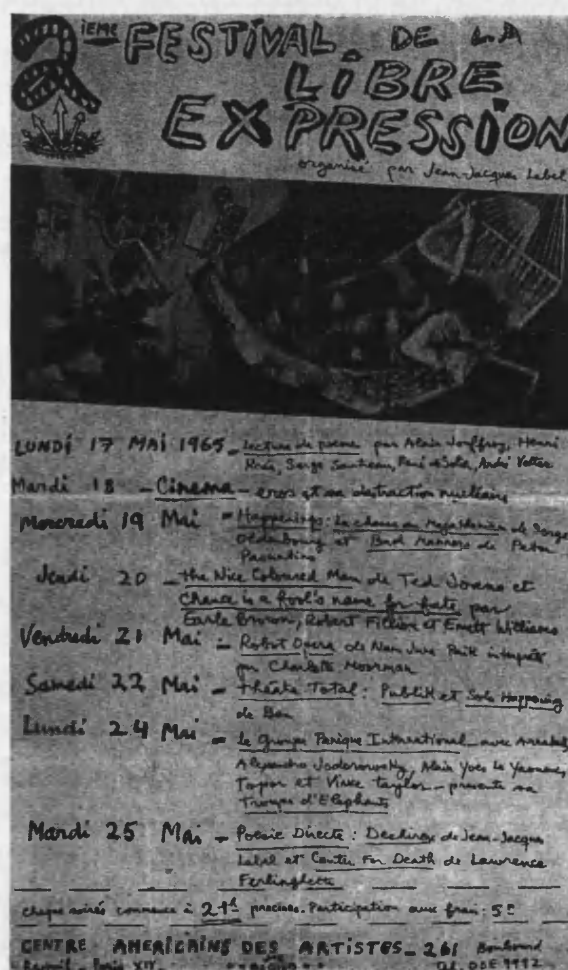 2ième FESTIVAL DE LA
LIBRE
EXPRESSION
organisé par Jean-Jacques Lebel
LUNDI 17 MAI 1965 - lecture de poème par Alain Jouffroy, Henri
Serge Sautreau, André Velter
Mardi 18 - Cinema - eros et sa destruction nucléaire
Mercredi 19 Mai - Happenings: La chasse au de Serge
Oldenbourg et Bad Manners de
Jeudi 20 - the Nice Coloured Man de Ted Joans et
Chance is a fool's name for fate par
Earle Brown, Robert Filliou et Emett Williams
Vendredi 21 Mai - Robot Opera de Nam June Paik interprété
par Charlotte Moorman
Samedi 22 Mai - théâtre Total: Publik et Solo Happening
de Ben
Lundi 24 Mai - Le groupe Panique International - avec Arrabal,
Alejandro Jodorowsky, Alain Yves Le Yaouanc,
Topor et Vince Taylor - présente sa
Troupe d'Elephants
Mardi 25 Mai - Poesie Directe: Dechirex de Jean-Jacques
Lebel et Center For Death de Lawrence
Ferlinghetti
chaque soirée commence à 21h précises. Participation aux frais: 5F
CENTRE AMERICAINS DES ARTISTES - 261 Boulevard
Raspail - Paris XIV